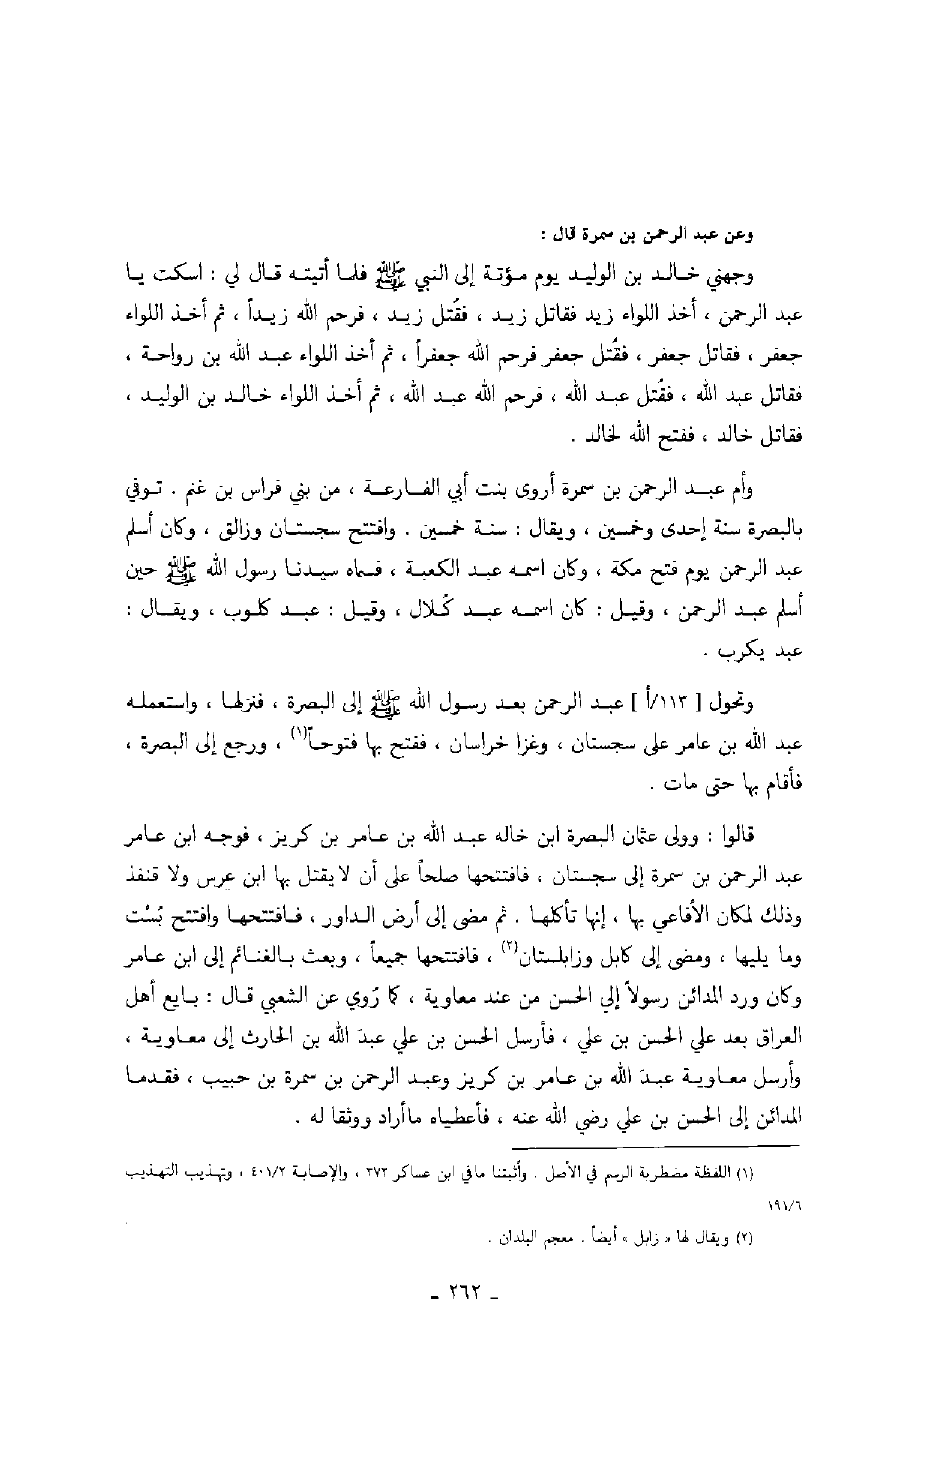 وعن عبد الرحمن بن سمرة قال :
وجهني خالد بن الوليد يوم مؤتة إلى النبي ﷺ فلما أتيته قال لي : اسكت يا
عبد الرحمن ، أخذ اللواء زيد فقاتل زيد ، فقُتل زيد ، فرحم الله زيداً ، ثم أخذ اللواء
جعفر ، فقاتل جعفر ، فقُتل جعفر فرحم الله جعفراً ، ثم أخذ اللواء عبد الله بن رواحة ،
فقاتل عبد الله ، فقُتل عبد الله ، فرحم الله عبد الله ، ثم أخذ اللواء خالد بن الوليد ،
فقاتل خالد ، ففتح الله لخالد .
وأم عبد الرحمن بن سمرة أروى بنت أبي الفارعة ، من بني فراس بن غنم . توفي
بالبصرة سنة إحدى وخمسين ، ويقال : سنة خمسين . وافتتح سجستان وزالق ، وكان أسلم
عبد الرحمن يوم فتح مكة ، وكان اسمه عبد الكعبة ، فسماه سيدنا رسول الله ﷺ حين
أسلم عبد الرحمن ، وقيل : كان اسمه عبد كُلال ، وقيل : عبد كلوب ، ويقال :
عبد يكرب .
وتحول [ ١١٣/أ ] عبد الرحمن بعد رسول الله ﷺ إلى البصرة ، فنزلها ، واستعمله
عبد الله بن عامر على سجستان ، وغزا خراسان ، ففتح بها فتوحاً(١) ، ورجع إلى البصرة ،
فأقام بها حتى مات .
قالوا : وولى عثمان البصرة ابن خاله عبد الله بن عامر بن كريز ، فوجه ابن عامر
عبد الرحمن بن سمرة إلى سجستان ، فافتتحها صلحاً على أن لا يقتل بها ابن عرس ولا قنفذ
وذلك لمكان الأفاعي بها ، إنها تأكلها . ثم مضى إلى أرض الداور ، فافتتحها وافتتح بُسْت
وما يليها ، ومضى إلى كابل وزابلستان(٢) ، فافتتحها جميعاً ، وبعث بالغنائم إلى ابن عامر
وكان ورد المدائن رسولاً إلى الحسن من عند معاوية ، كما رُوي عن الشعبي قال : بايع أهل
العراق بعد علي الحسن بن علي ، فأرسل الحسن بن علي عبدَ الله بن الحارث إلى معاوية ،
وأرسل معاوية عبدَ الله بن عامر بن كريز وعبد الرحمن بن سمرة بن حبيب ، فقدما
المدائن إلى الحسن بن علي رضي الله عنه ، فأعطياه ماأراد ووثقا له .
(١) اللفظة مضطربة الرسم في الأصل . وأثبتنا مافي ابن عساكر ٣٧٢ ، والإصابة ٤٠١/٢ ، وتهذيب التهذيب
١٩١/٦
(٢) ويقال لها « زابل » أيضاً . معجم البلدان .
ـ ٢٦٢ ـ